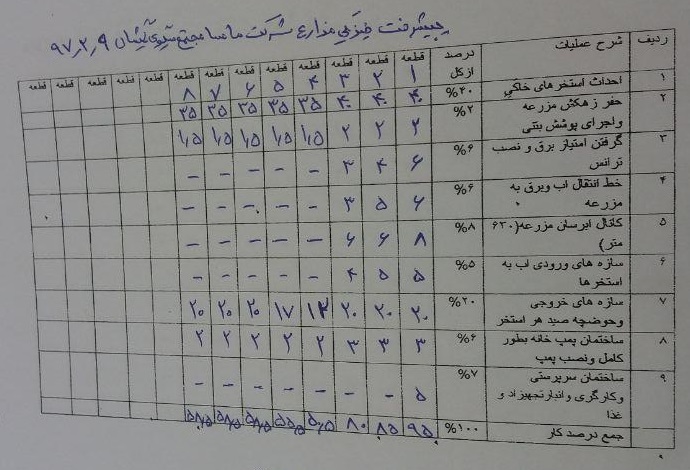 پیشرفت فیزیکی مزارع شرکت ماسا مجتمع ۹۷٫۲٫۹
ردیف شرح عملیات درصد ازکل قطعه ۱ قطعه ۲ قطعه ۳ قطعه ۴ قطعه ۵ قطعه ۶ قطعه ۷ قطعه ۸ قطعه قطعه قطعه قطعه
۱ احداث استخرهای خاکی %۴۰ ۴۰ ۴۰ ۴۰ ۳۵ ۳۵ ۳۵ ۳۵ ۳۵
۲ حفر زهکش مزرعه
واجرای پوشش بتنی %۲ ۲ ۲ ۲ ۱٫۵ ۱٫۵ ۱٫۵ ۱٫۵ ۱٫۵
۳ گرفتن امتیاز برق و نصب
ترانس %۶ ۶ ۴ ۳ - - - - -
۴ خط انتقال اب وبرق به
مزرعه %۶ ۶ ۵ ۳ - - - - -
۵ کانال ابرسان مزرعه(۶۳۰
متر) %۸ ۸ ۶ ۶ - - - - -
۶ سازه های ورودی اب به
استخرها %۵ ۵ ۵ ۴ - - - - -
۷ سازه های خروجی
وحوضچه صید هر استخر %۲۰ ۲۰ ۲۰ ۲۰ ۱۲ ۱۷ ۲۰ ۲۰ ۲۰
۸ ساختمان پمپ خانه بطور
کامل ونصب پمپ %۶ ۳ ۳ ۳ ۲ ۲ ۲ ۲ ۲
۹ ساختمان سرپرستی
وکارگری وانبارتجهیزاد و
غذا %۷ ۵ - - - - - - -
جمع درصد کار %۱۰۰ ۹۵ ۸۵ ۸۰ ۵۰٫۵ ۵۵٫۵ ۵۸٫۵ ۵۸٫۵ ۵۸٫۵